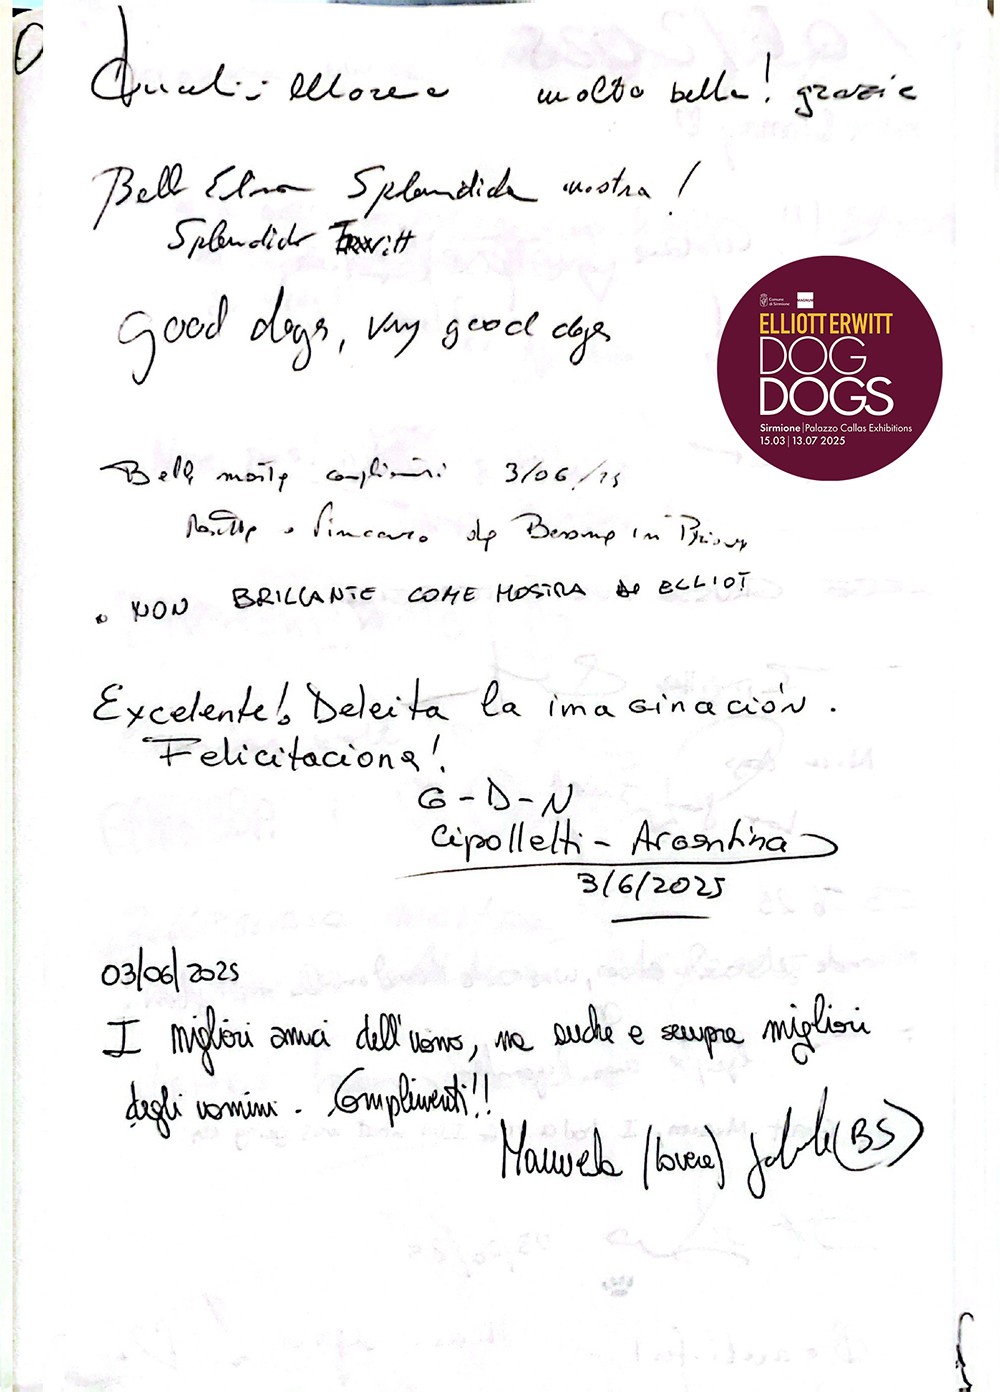 molto bella! grazie
Splendida mostra!
Splendido Erwitt
good dogs, very good dogs
Comune
di Sirmione
MAGNUM
ELLIOTT ERWITT
DOG
DOGS
Sirmione | Palazzo Callas Exhibitions
15.03 | 13.07 2025
Bella mostra complimenti 3/06/25
e Vincenzo da Besana in Brianza
. NON BRILLANTE COME MOSTRA DI ELLIOT
Excelente! Deleita la imaginación.
Felicitaciones!
G-D-N
Cipolletti - Argentina
3/6/2025
03/06/2025
I migliori amici dell'uomo, ma anche e sempre migliori
degli uomini. Complimenti!!
Manuela (Lovere) (BS)